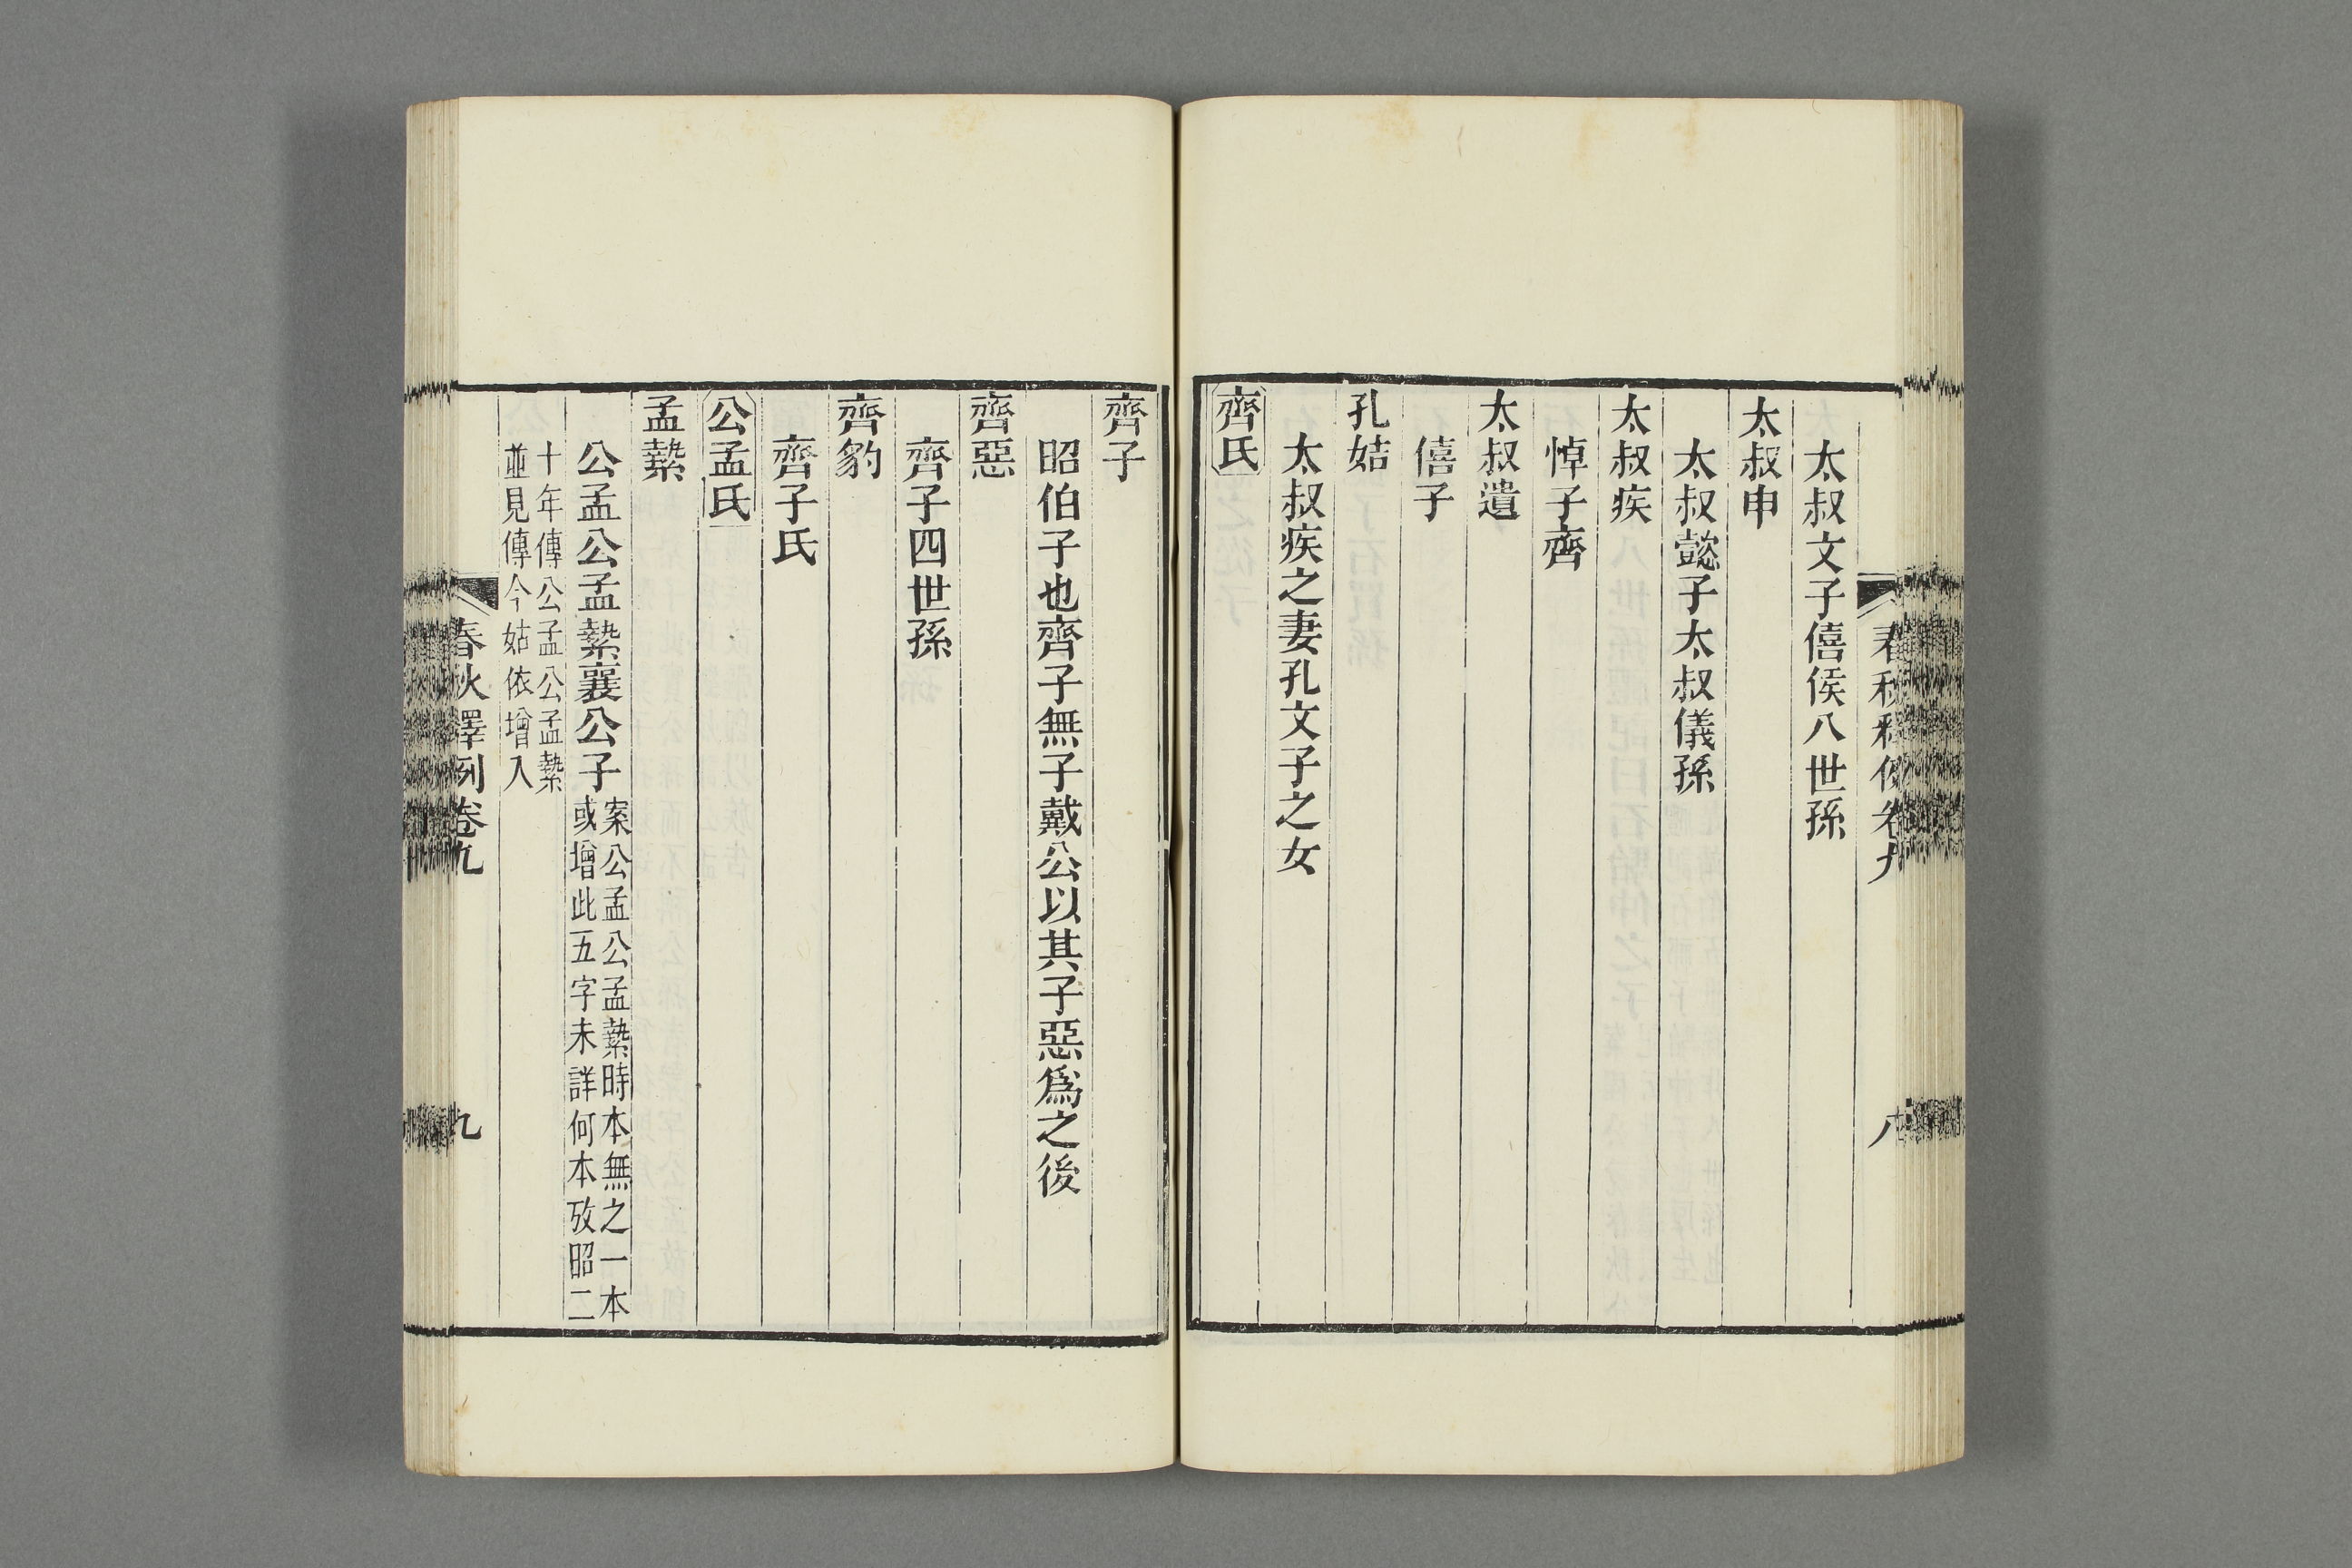 太叔文子僖侯八世孫
太叔申
太叔懿子太叔儀孫
太叔疾
悼子齊
太叔遺
僖子
孔姞
太叔疾之妻孔文子之女
齊氏
齊子
昭伯子也齊子無子戴公以其子惡爲之後
齊惡
齊子四世孫
齊豹
齊子氏
公孟氏
孟縶
公孟公孟縶襄公子
案公孟公孟縶時本無之一本
或增此五字未詳何本攷昭二
十年傳公孟公孟縶
並見傳今姑依增入
春秋釋例卷九
九
春秋釋例卷九
八